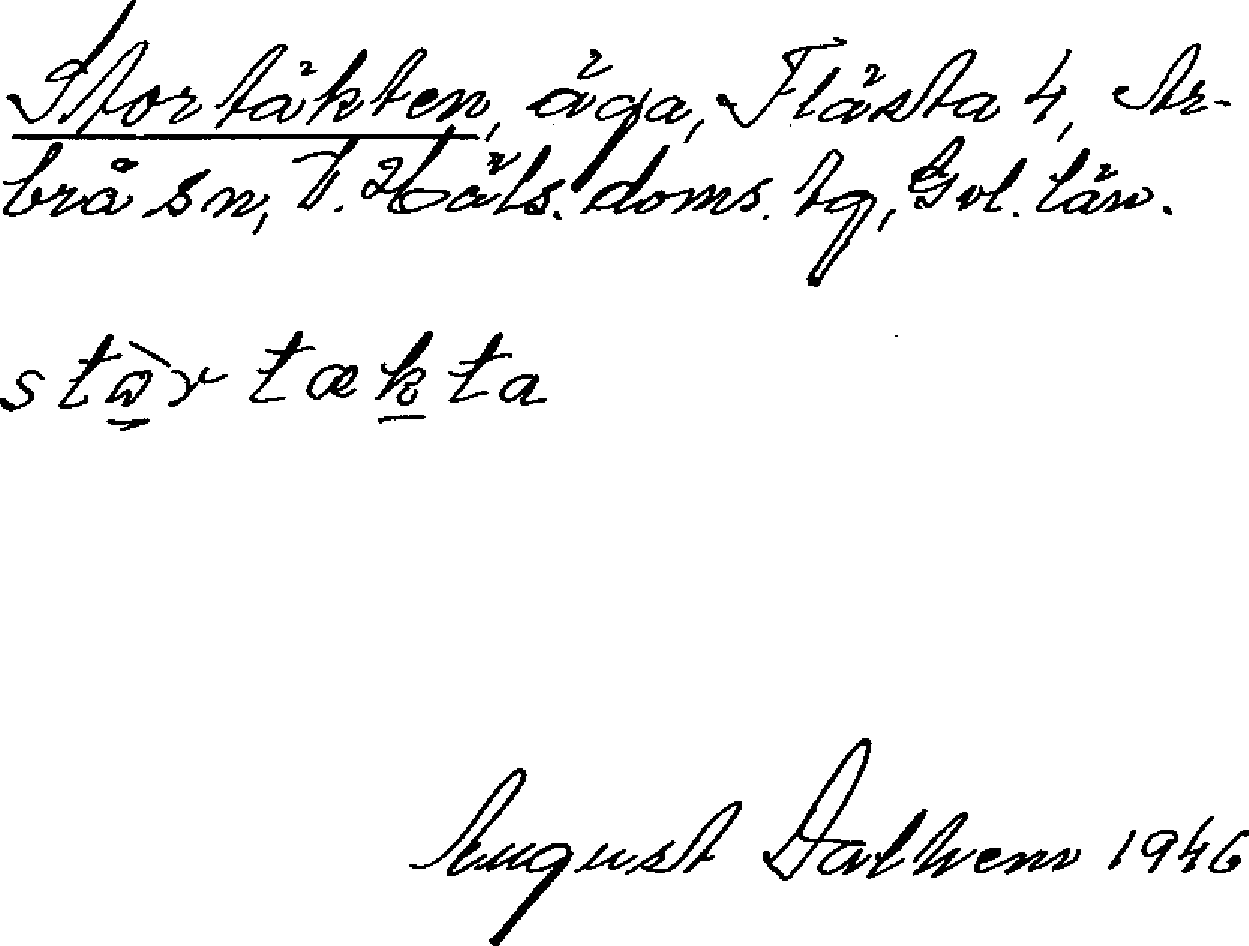 Stortäkten, äga, Flästa 4, Ar-
brå sn, V. Häls. doms. tg, Gvl. län.
stɷ̀r tækta
August Dalhem 1946